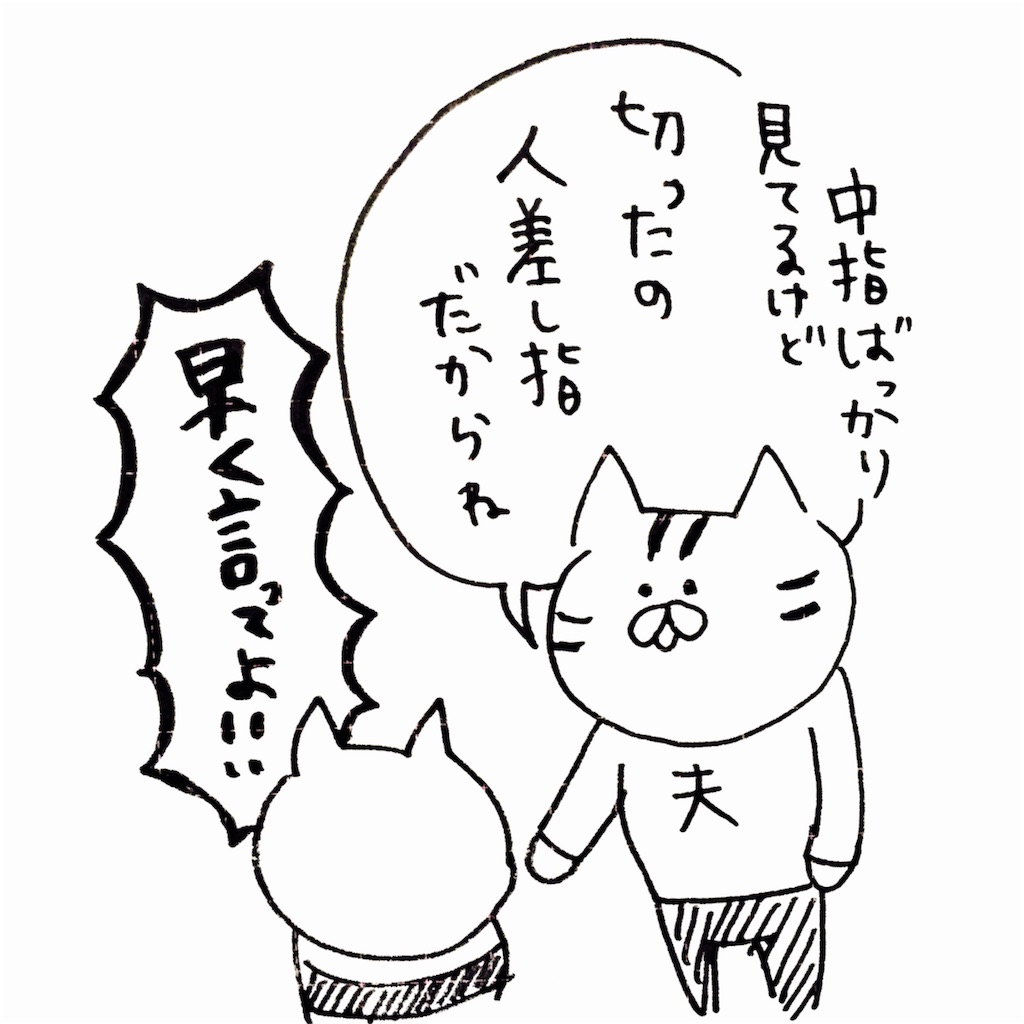 中指ばっかり
見てるけど
切ったの
人差し指
だからね
早く言ってよ!!
夫